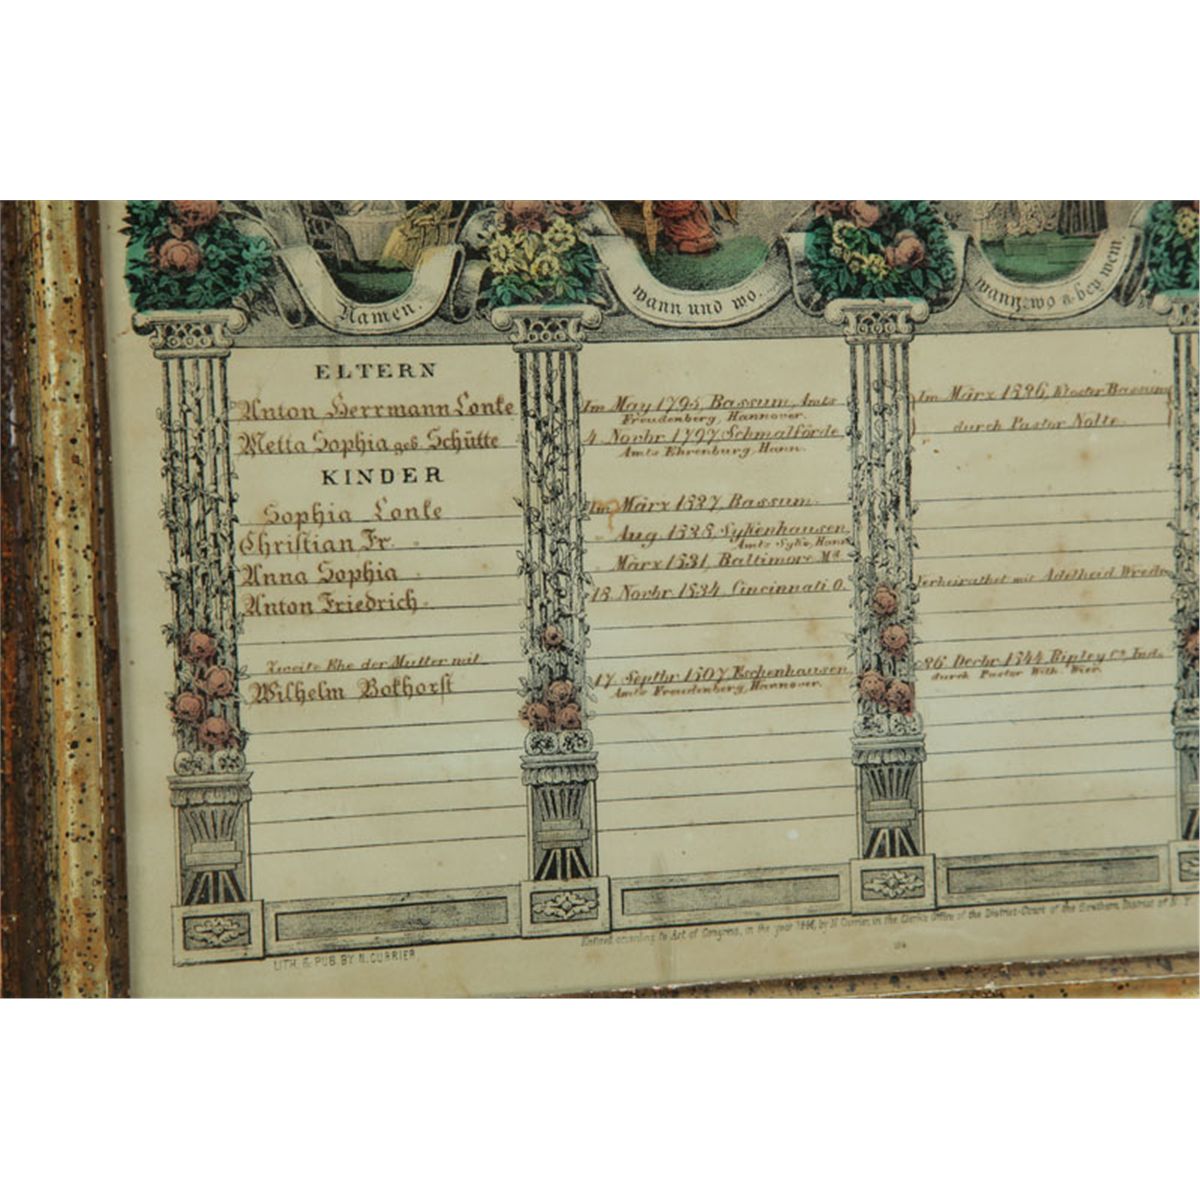 Namen.
wann und wo.
wann, wo & bey wem.
ELTERN
Anton Herrmann Lonke
Im May 1795, Bassum, Amts
Freudenberg, Hannover.
Im März 1826, Kloster Bassum
durch Pastor Nolte.
Metta Sophia geb Schütte
4. Novbr 1797 Schmalförde
Amts Ehrenburg, Hann.
KINDER
Sophia Lonke
Im März 1827, Bassum.
Christian Fr.
Aug. 1828, Sykenhausen
Amts Syke, Hann
Anna Sophia
März 1831, Baltimore Md.
Anton Friedrich.
18. Novbr. 1834, Cincinnati O.
Verheirathet mit Adelheid Wrede
Zweite Ehe der Mutter mit
Wilhelm Bokhorst
17 Septbr 1807 Eschenhausen
Amts Freudenberg, Hannover.
26 Decbr 1844 Ripley Co, Ind.
durch Pastor Wilh. Wier.
LITH. & PUB. BY N. CURRIER
Entered according to Act of Congress, in the year 1846, by N Currier, in the Clerks Office of the District-Court of the Southern District of N. Y